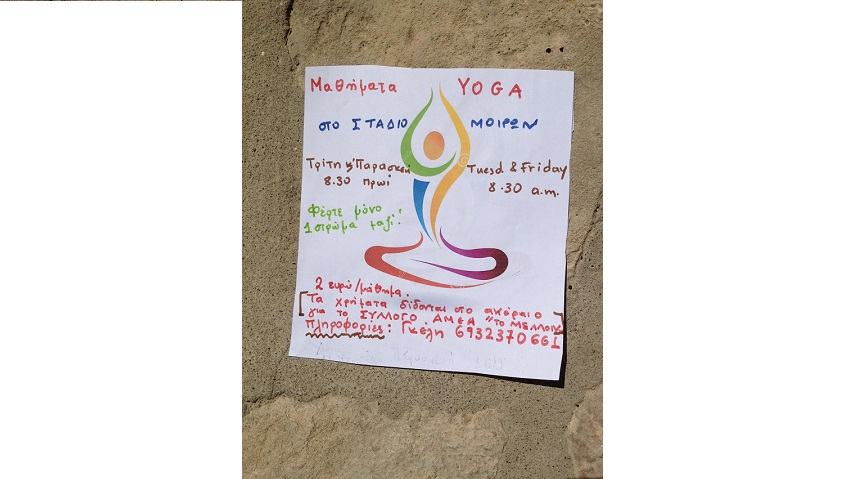 Μαθήματα YOGA
στο ΣΤΑΔΙΟ ΜΟΙΡΩΝ
Τρίτη κ' Παρασκευή Tuesd & Friday
8.30 πρωί 8.30 a.m.
Φέρτε μόνο
1 στρώμα μαζί!
2 ευρώ/μάθημα.
Τα χρήματα δίδονται στο ακέραιο
για το ΣΥΛΛΟΓΟ ΑΜΕΑ "το ΜΕΛΛΟΝ"
Πληροφορίες: Γκέλη 6932370661